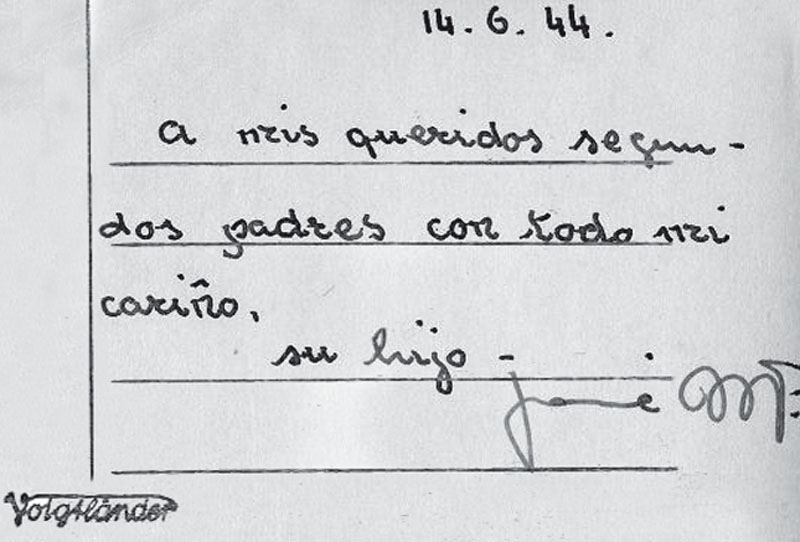 14.6.44.
a mis queridos segun-
dos padres con todo mi
cariño,
su hijo -
José Mª
Voigtländer